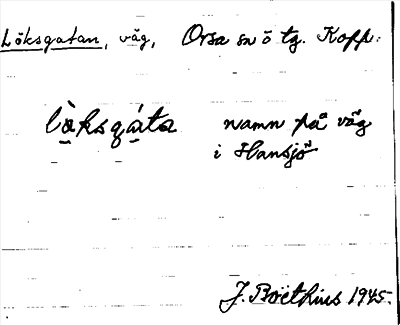 Löksgatan, väg, Orsa sn ö tg. Kopp:
lò̱ksgá̱ta namn på väg
i Hansjö
J. Boëthius 1945.